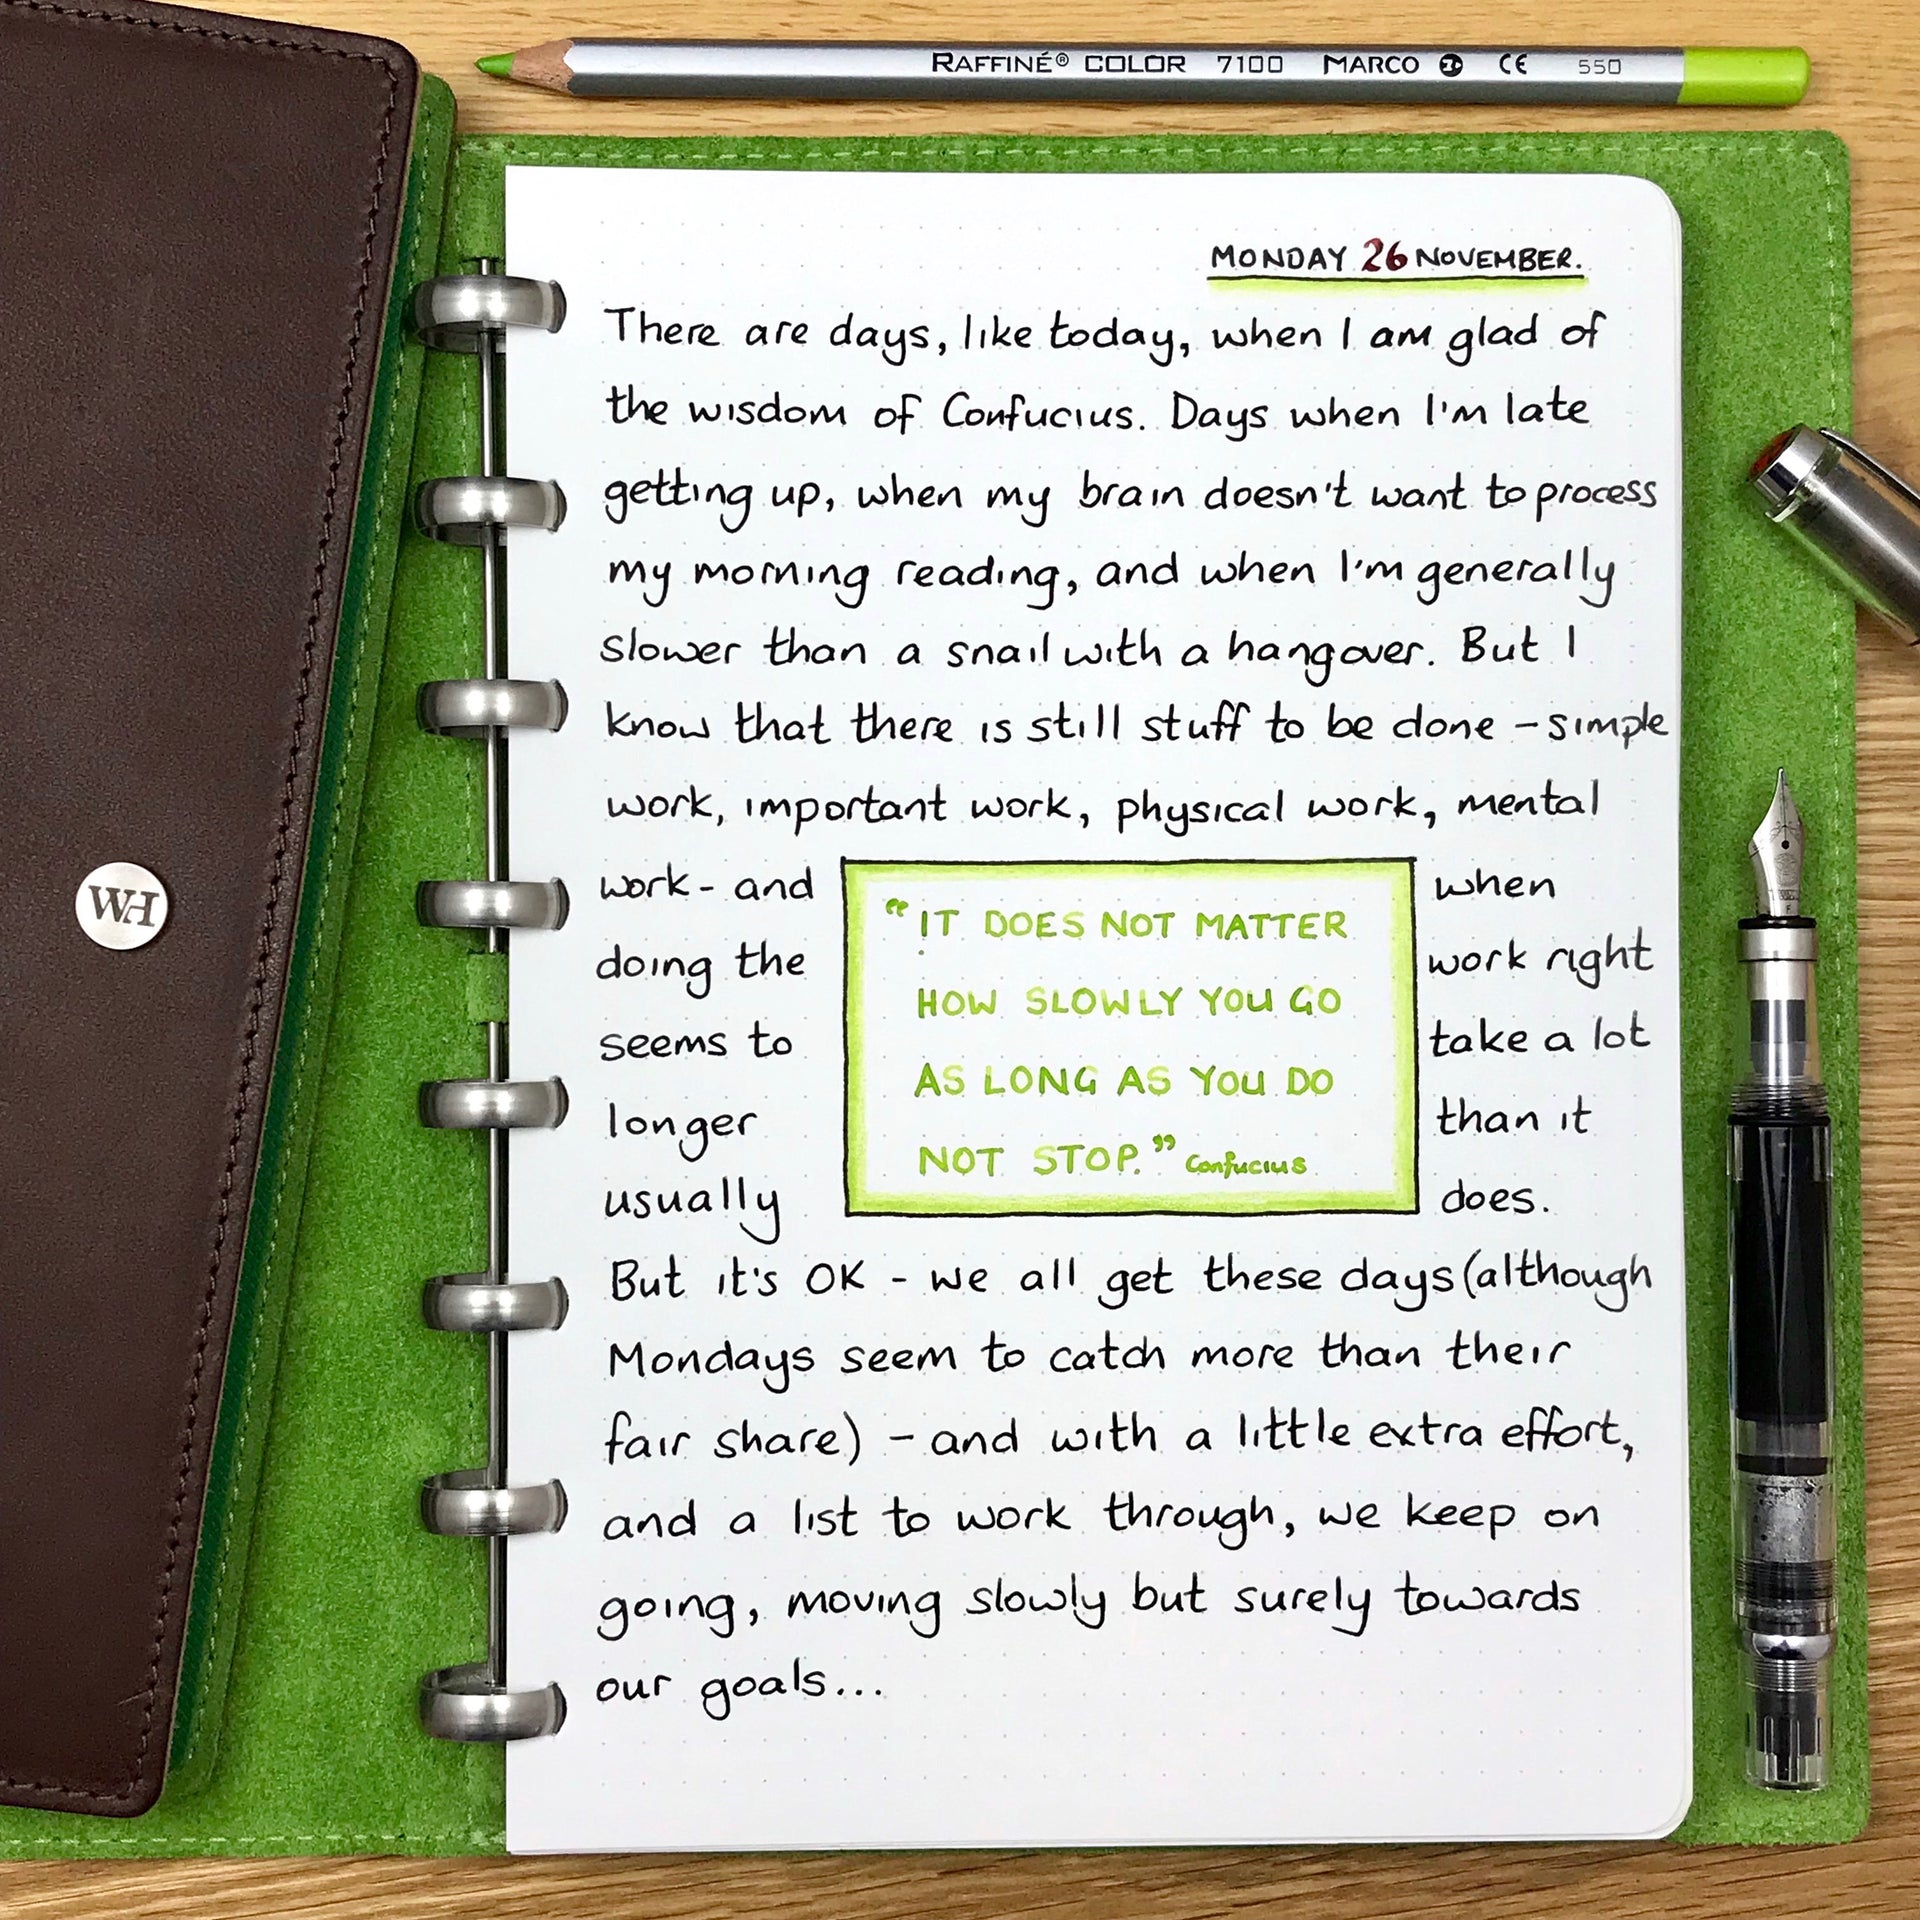 RAFFINÉ® COLOR 7100 MARCO CE 550
MONDAY 26 NOVEMBER.
There are days, like today, when I am glad of
the wisdom of Confucius. Days when I'm late
getting up, when my brain doesn't want to process
my morning reading, and when I'm generally
slower than a snail with a hangover. But I
know that there is still stuff to be done - simple
work, important work, physical work, mental
work - and when
doing the work right
seems to take a lot
longer than it
usually does.
"IT DOES NOT MATTER
HOW SLOWLY YOU GO
AS LONG AS YOU DO
NOT STOP." Confucius
But it's OK - we all get these days (although
Mondays seem to catch more than their
fair share) - and with a little extra effort,
and a list to work through, we keep on
going, moving slowly but surely towards
our goals...
WH